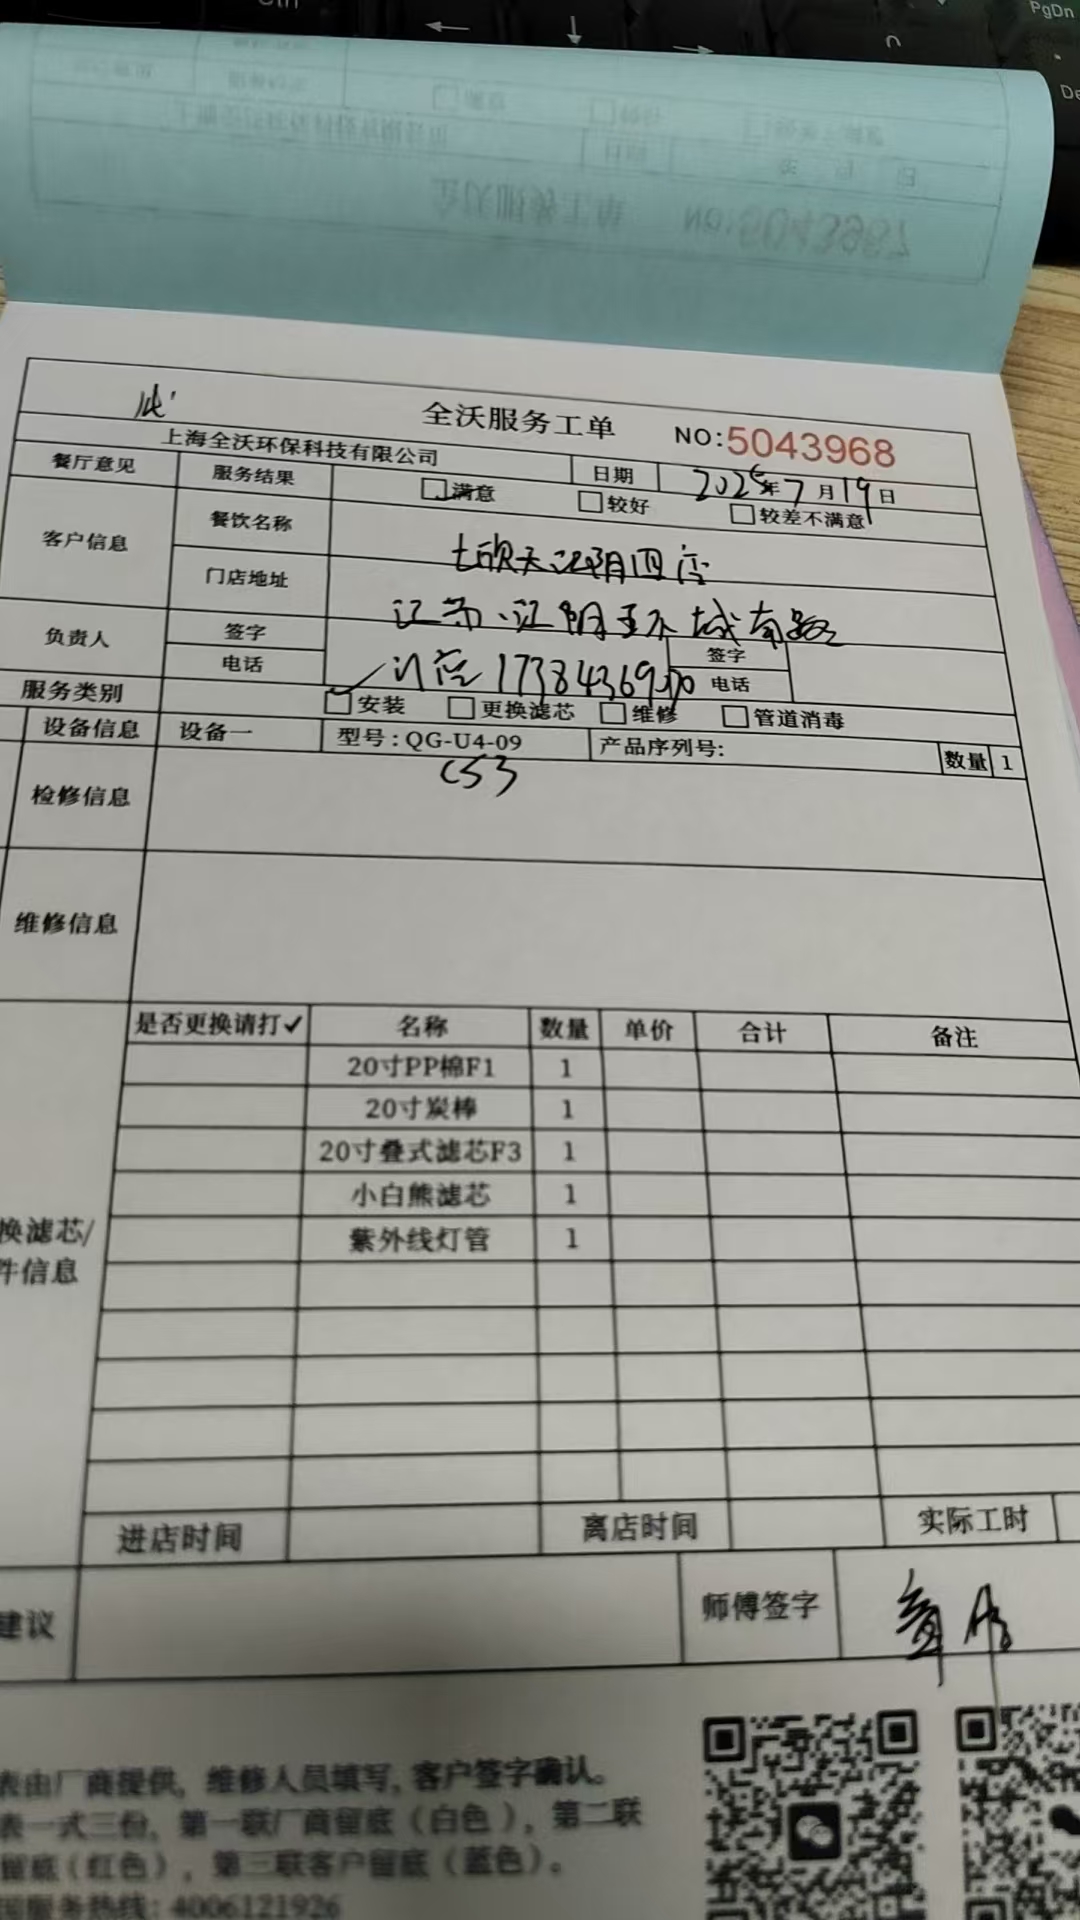 PgDn
全沃服务工单 NO:5043968
上海全沃环保科技有限公司 日期 2025年7月19日
餐厅意见 服务结果 满意 较好 较差不满意
客户信息 餐饮名称 七欣天江阴四店
门店地址 江苏、江阴 城南路
负责人 签字 签字
电话 电话
服务类别 ✓安装 更换滤芯 维修 管道消毒
设备信息 设备一 型号:QG-U4-09 产品序列号: 数量 1
C53
检修信息
维修信息
是否更换请打✓ 名称 数量 单价 合计 备注
20寸PP棉F1 1
20寸炭棒 1
20寸叠式滤芯F3 1
小白熊滤芯 1
紫外线灯管 1
换滤芯/
件信息
进店时间 离店时间 实际工时
建议 师傅签字
表由厂商提供，维修人员填写，客户签字确认。
表一式三份，第一联厂商留底（白色），第二联
留底（红色），第三联客户留底（蓝色）。
国服务热线: 4006121926